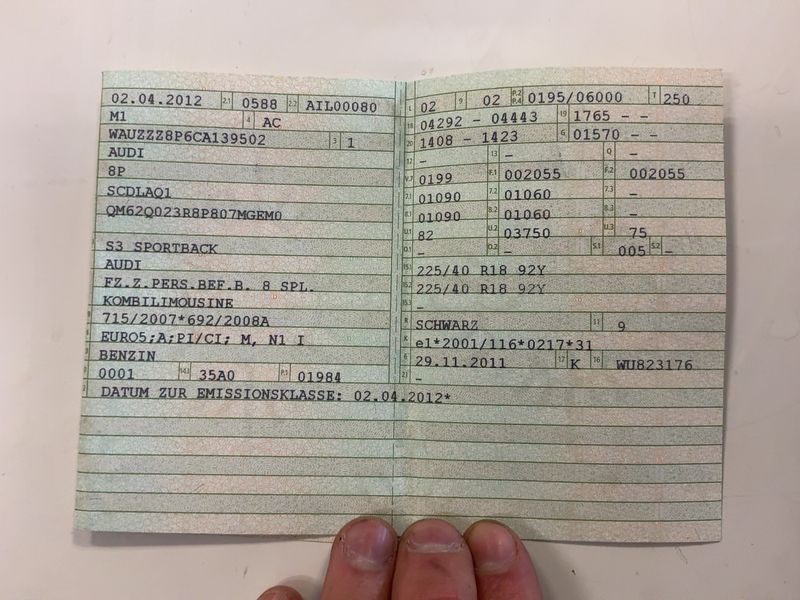 02.04.2012 2.1 0588 2.2 AIL00080
M1 4 AC
WAUZZZ8P6CA139502 3 1
AUDI
8P
SCDLAQ1
QM62Q023R8P807MGEM0
S3 SPORTBACK
AUDI
FZ.Z.PERS.BEF.B. 8 SPL.
KOMBILIMOUSINE
715/2007*692/2008A
EURO5;A;PI/CI; M, N1 I
BENZIN
0001 14.1 35A0 P.1 01984
DATUM ZUR EMISSIONSKLASSE: 02.04.2012*
L 02 9 02 P.2 P.4 0195/06000 T 250
18 04292 - 04443 19 1765 - -
20 1408 - 1423 G 01570 - -
12 - 13 - Q -
V.7 0199 F.1 002055 F.2 002055
7.1 01090 7.2 01060 7.3 -
8.1 01090 8.2 01060 8.3 -
U.1 82 U.2 03750 U.3 75
O.1 - O.2 - S.1 005 S.2 -
15.1 225/40 R18 92Y
15.2 225/40 R18 92Y
15.3 -
R SCHWARZ 11 9
K e1*2001/116*0217*31
6 29.11.2011 17 K 16 WU823176
21 -